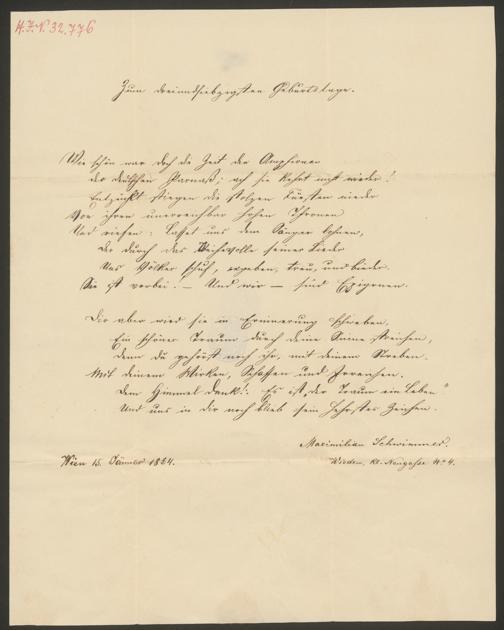 H.I.N. 32,776
Zum dreiundsiebzigsten Geburtstage.
Wie schön war doch die Zeit der Amphionen
der deutschen Parnaß; ach sie kehrt nicht wieder!
Entzückt stiegen die stolzen Fürsten nieder
Von ihren unerreichbar hohen Thronen
Und riefen: Lasset uns den Sänger lohnen,
Der durch das Weihevolle seiner Lieder
Uns Völker schuf, ergeben, treu, und bieder.
Sie ist vorbei! — Und wir — sind Epigonen.
Dir aber wird sie in Erinnerung schweben,
Ein schöner Traum durch deine Sinne streichen,
Denn du gehörst noch ihr, mit deinem Streben.
Mit deinem Wirken, Schaffen und
Dem Himmel Dank! Es ist „der Traum ein Leben"
Und uns in dir noch blieb sein hehrstes Zeichen.
Maximilian Schwimmer.
Wien 15. Jänner 1864.
Wieden, kl. Neugasse No 4.